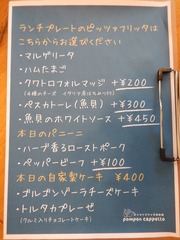 ランチプレートのピッツァフリッタは
こちらからお選びください
・マルゲリータ
・ハムたまご
・クワトロフォルマッジ +¥200
(4種のチーズ イタリア産はちみつ付)
・ペスカトーレ(魚貝) +¥300
・魚貝のホワイトソース +¥450
本日のパニーニ
・ハーブ香るローストポーク
・ペッパービーフ +¥100
本日の自家製ケーキ ¥400
・ゴルゴンゾーラチーズケーキ
・トルタカプレーゼ
(クルミ入りチョコレートケーキ)
pompon cappello